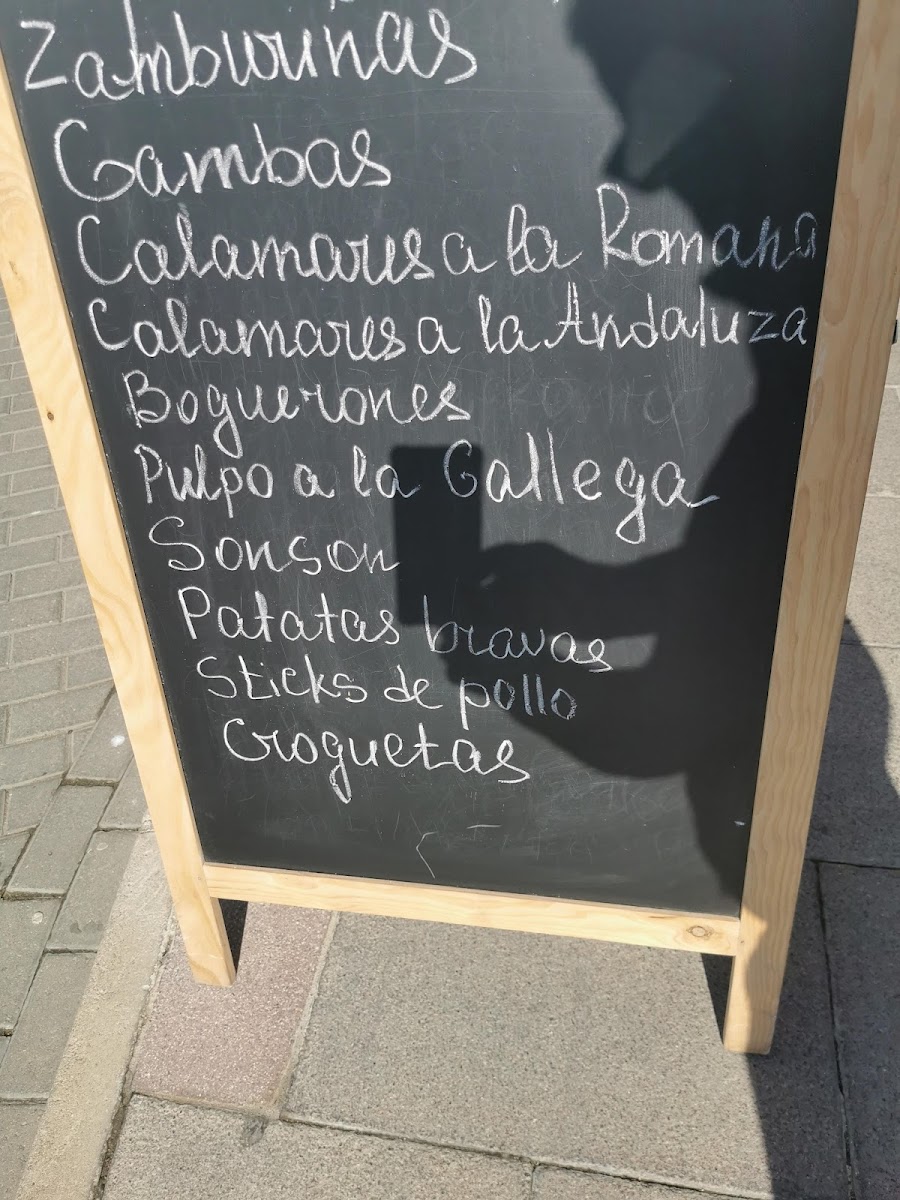 Zamburiñas
Gambas
Calamares a la Romana
Calamares a la Andaluza
Boguerones
Pulpo a la Gallega
Sonson
Patatas bravas
Sticks de pollo
Croguetas